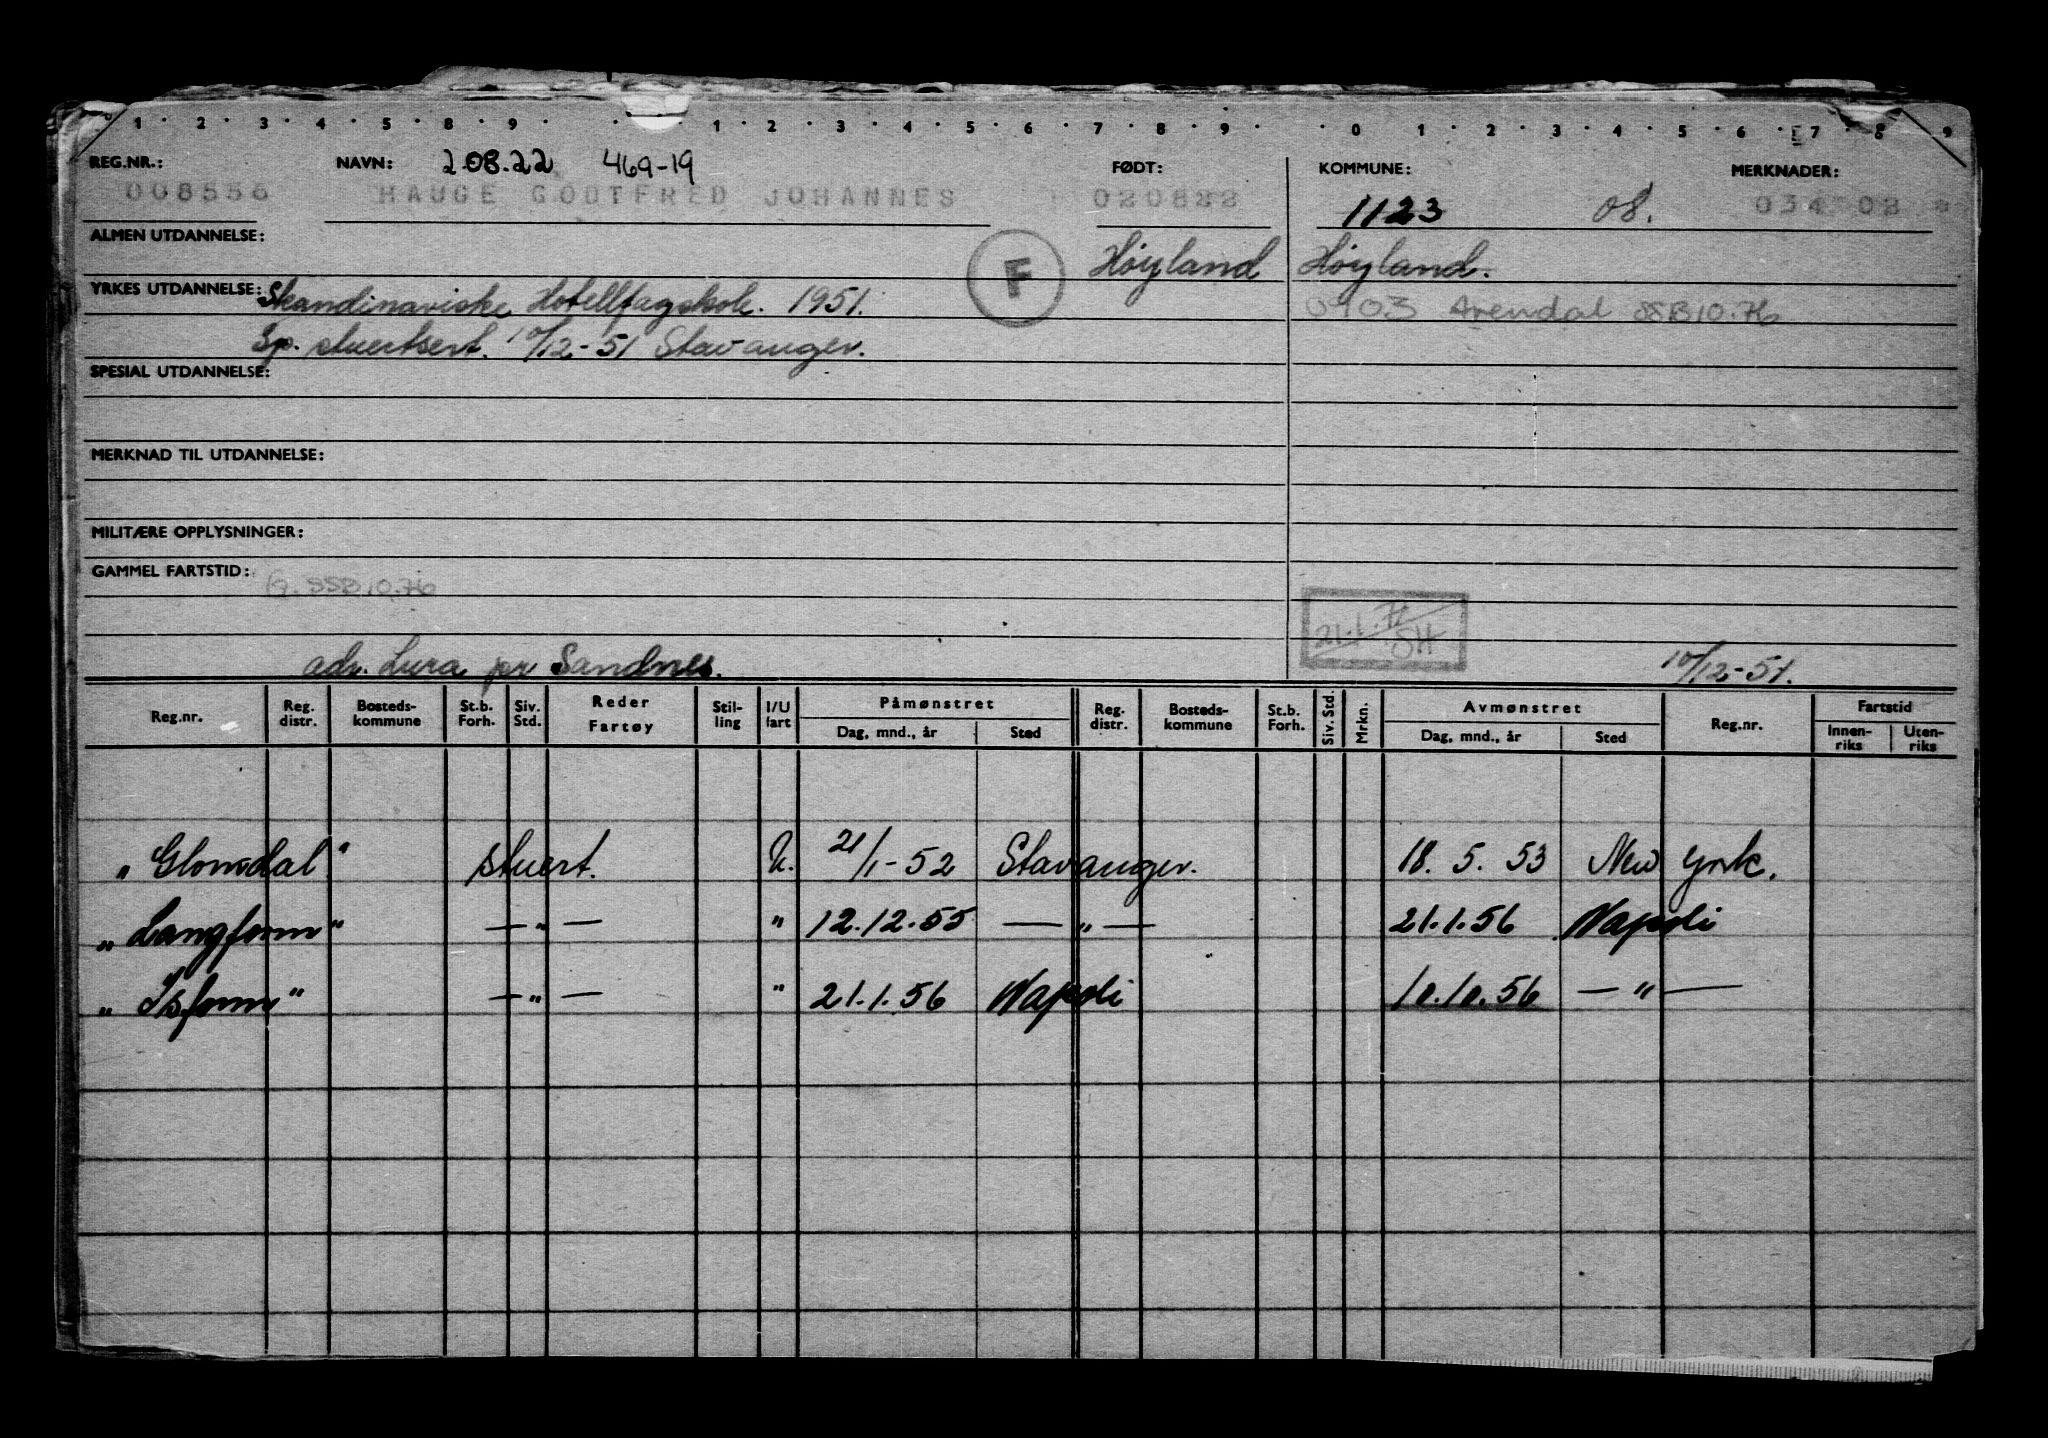 1 2 3 4 5 8 9 1 2 3 4 5 6 7 8 9 0 1 2 3 4 5 6 7 8 9
REG.NR.: NAVN: 2.08.22 469-19 FØDT: KOMMUNE: MERKNADER:
008556 HAUGE GODTFRED JOHANNES 020822 1123 08. 034 02
ALMEN UTDANNELSE: F Høyland Høyland.
YRKES UTDANNELSE: Skandinaviske Hotellfagskole. 1951. 0903 Arendal SSB 10.76
Sp. stuertsert. 10/12-51 Stavanger.
SPESIAL UTDANNELSE:
MERKNAD TIL UTDANNELSE:
MILITÆRE OPPLYSNINGER:
GAMMEL FARTSTID: SSB 10.76
21.1.72
SH
adr. Lura pr Sandnes. 10/12-51.
Reg.nr. Reg. distr. Bosteds-kommune St.b. Forh. Siv. Std. Reder Fartøy Stil-ling I/U fart Påmønstret Dag, mnd., år Sted Reg. distr. Bosteds-kommune St.b. Forh. Siv. Std. Mrkn. Avmønstret Dag, mnd., år Sted Reg.nr. Fartstid Innen-riks Uten-riks
„Glomdal" stuert. U. 21/1-52 Stavanger. 18.5.53 New York.
„Langfonn" —„— " 12.12.55 —„— 21.1.56 Napoli
„Isfonn" —„— " 21.1.56 Napoli 10.10.56 —„—